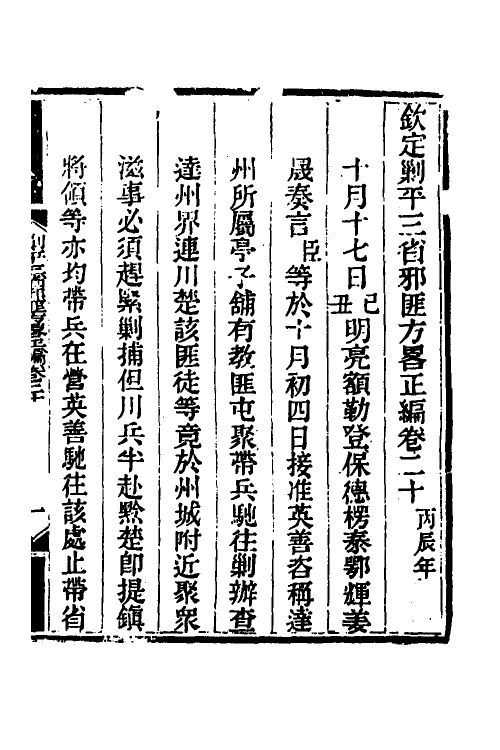 欽定剿平三省邪匪方畧正編卷二十 丙辰年
十月十七日己丑明亮額勒登保德楞泰鄂輝姜
晟奏言臣等於十月初四日接准英善咨稱達
州所屬亭子舖有教匪屯聚帶兵馳往剿辦查
達州界連川楚該匪徒等竟於州城附近聚衆
滋事必須趕緊剿捕但川兵半赴黔楚卽提鎮
將領等亦均帶兵在營英善馳往該處止帶省
剿平三省邪匪方畧正編卷二十
一